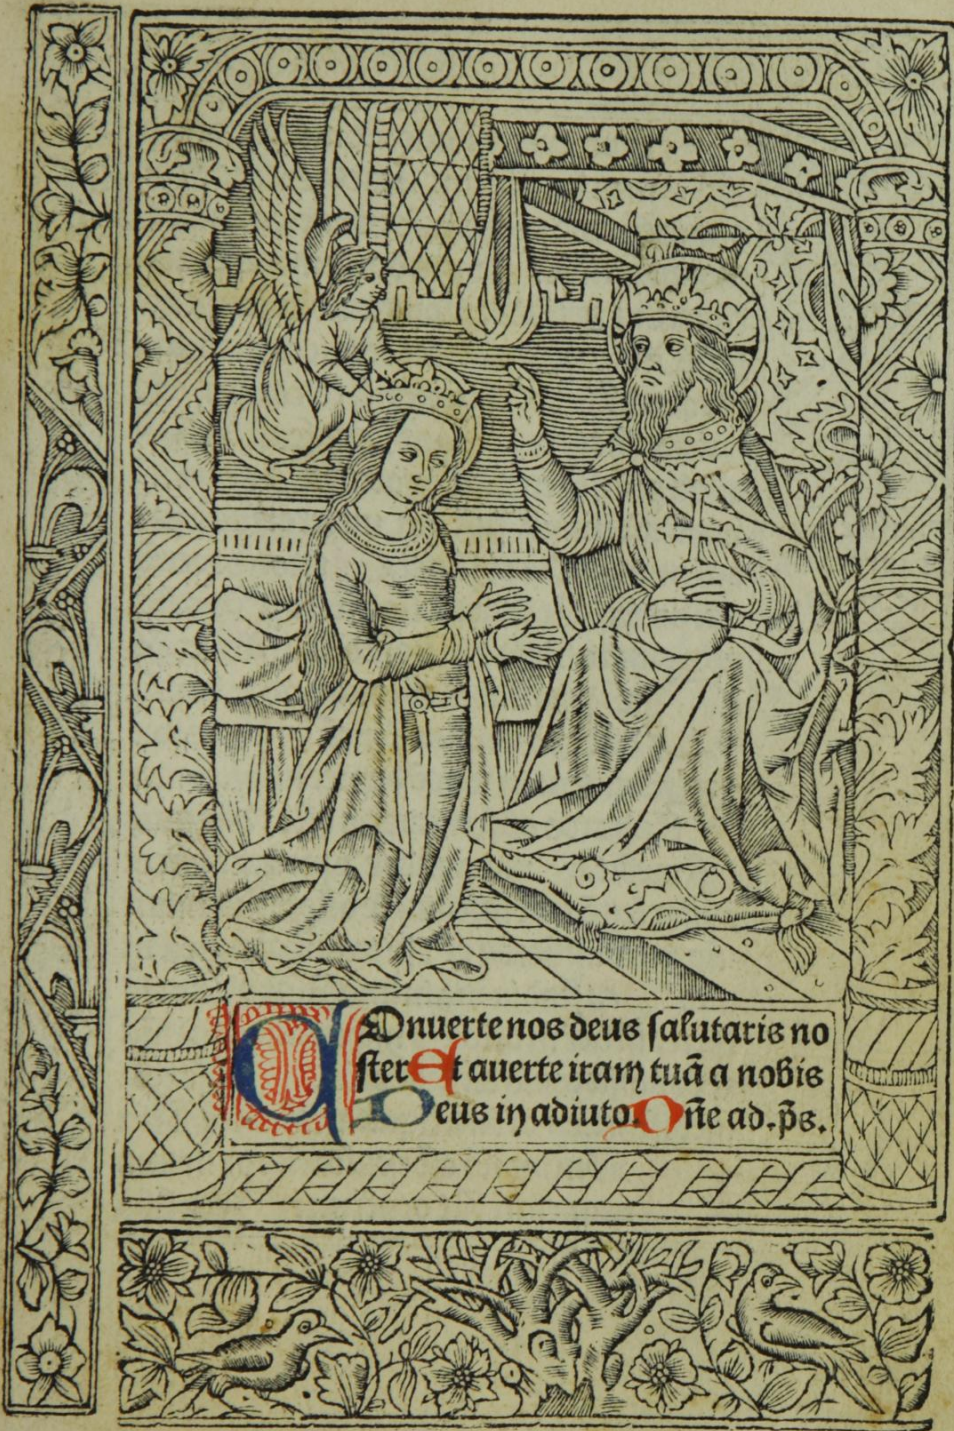 COnuerte nos deus salutaris no
ster Et auerte iram tuā a nobis
Deus in adiuto. Dn̄e ad. p̄s.